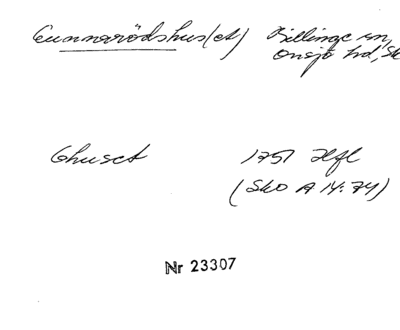 Gunnarödshus(et) Billinge sn,
Onsjö hd, Sk
Ghuset 1751 Hfl
(SkO A 14:74)
Nr 23307